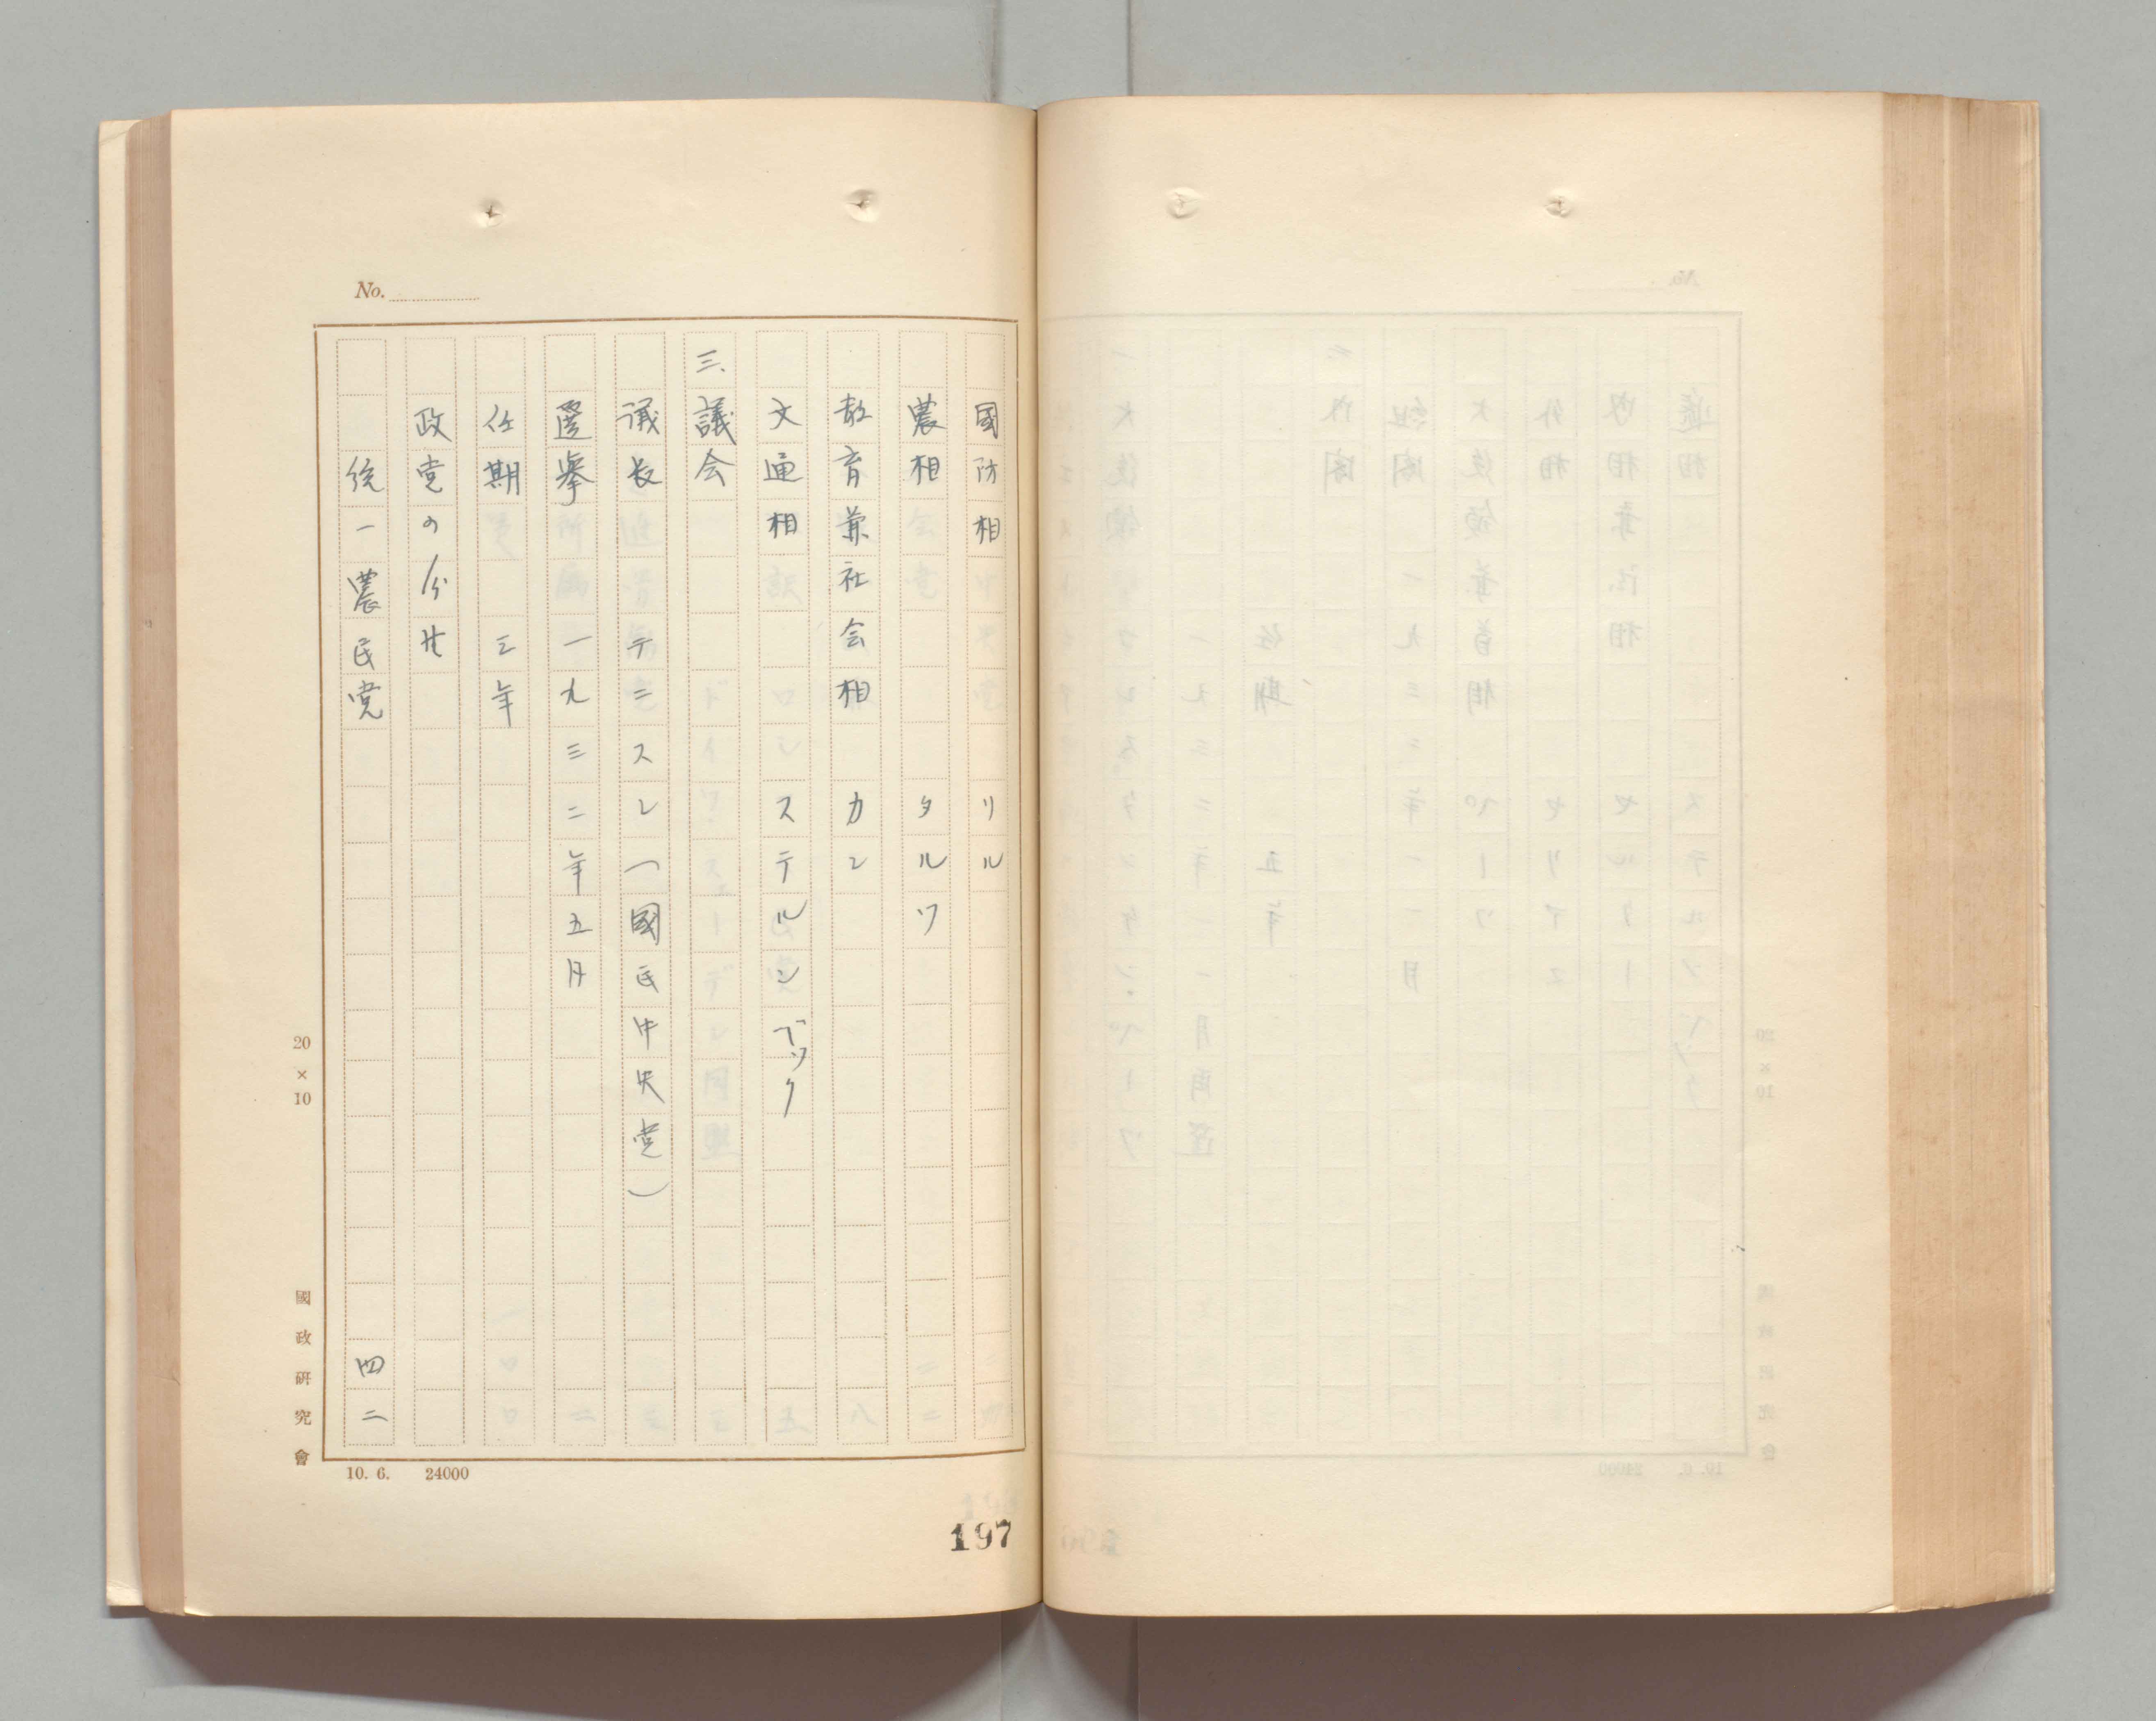 No.
國防相 リル
農相 タルツ
教育兼社会相 カン
文通相 ステルンベック
三、議会
議長 テニスン（國民中央党）
選挙 一九三二年五月
任期 三年
政党の分
統一農民党 四二
20×10
國政研究會
10. 6. 24000
197